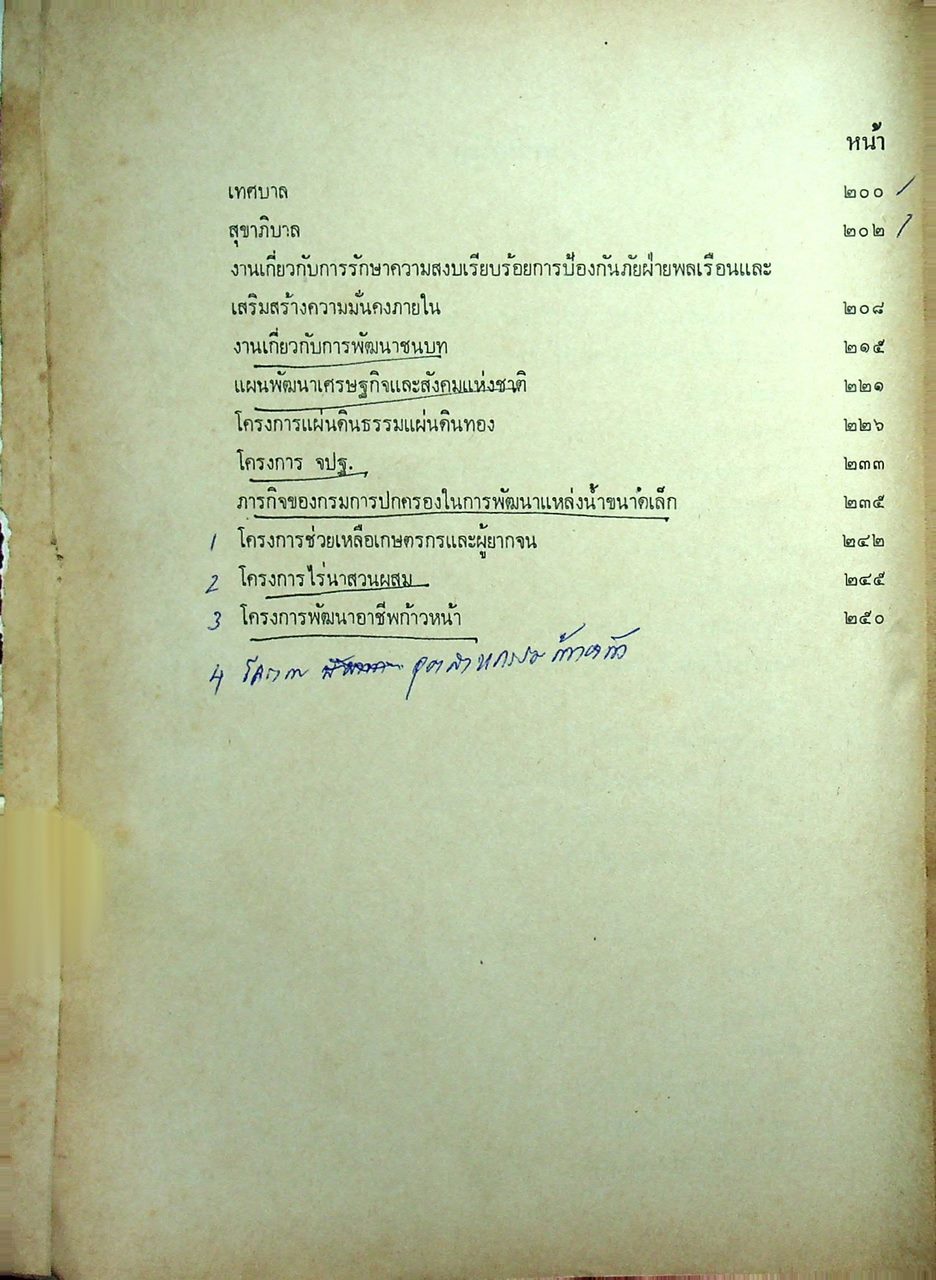 หน้า
เทศบาล ๒๐๐ /
สุขาภิบาล ๒๐๒ /
งานเกี่ยวกับการรักษาความสงบเรียบร้อยการป้องกันภัยฝ่ายพลเรือนและ
เสริมสร้างความมั่นคงภายใน ๒๐๘
งานเกี่ยวกับการพัฒนาชนบท ๒๑๕
แผนพัฒนาเศรษฐกิจและสังคมแห่งชาติ ๒๒๑
โครงการแผ่นดินธรรมแผ่นดินทอง ๒๒๖
โครงการ จปฐ. ๒๓๓
ภารกิจของกรมการปกครองในการพัฒนาแหล่งน้ำขนาดเล็ก ๒๓๕
1 โครงการช่วยเหลือเกษตรกรและผู้ยากจน ๒๔๒
2 โครงการไร่นาสวนผสม ๒๔๕
3 โครงการพัฒนาอาชีพก้าวหน้า ๒๕๐
4 อุตสาหกรรม